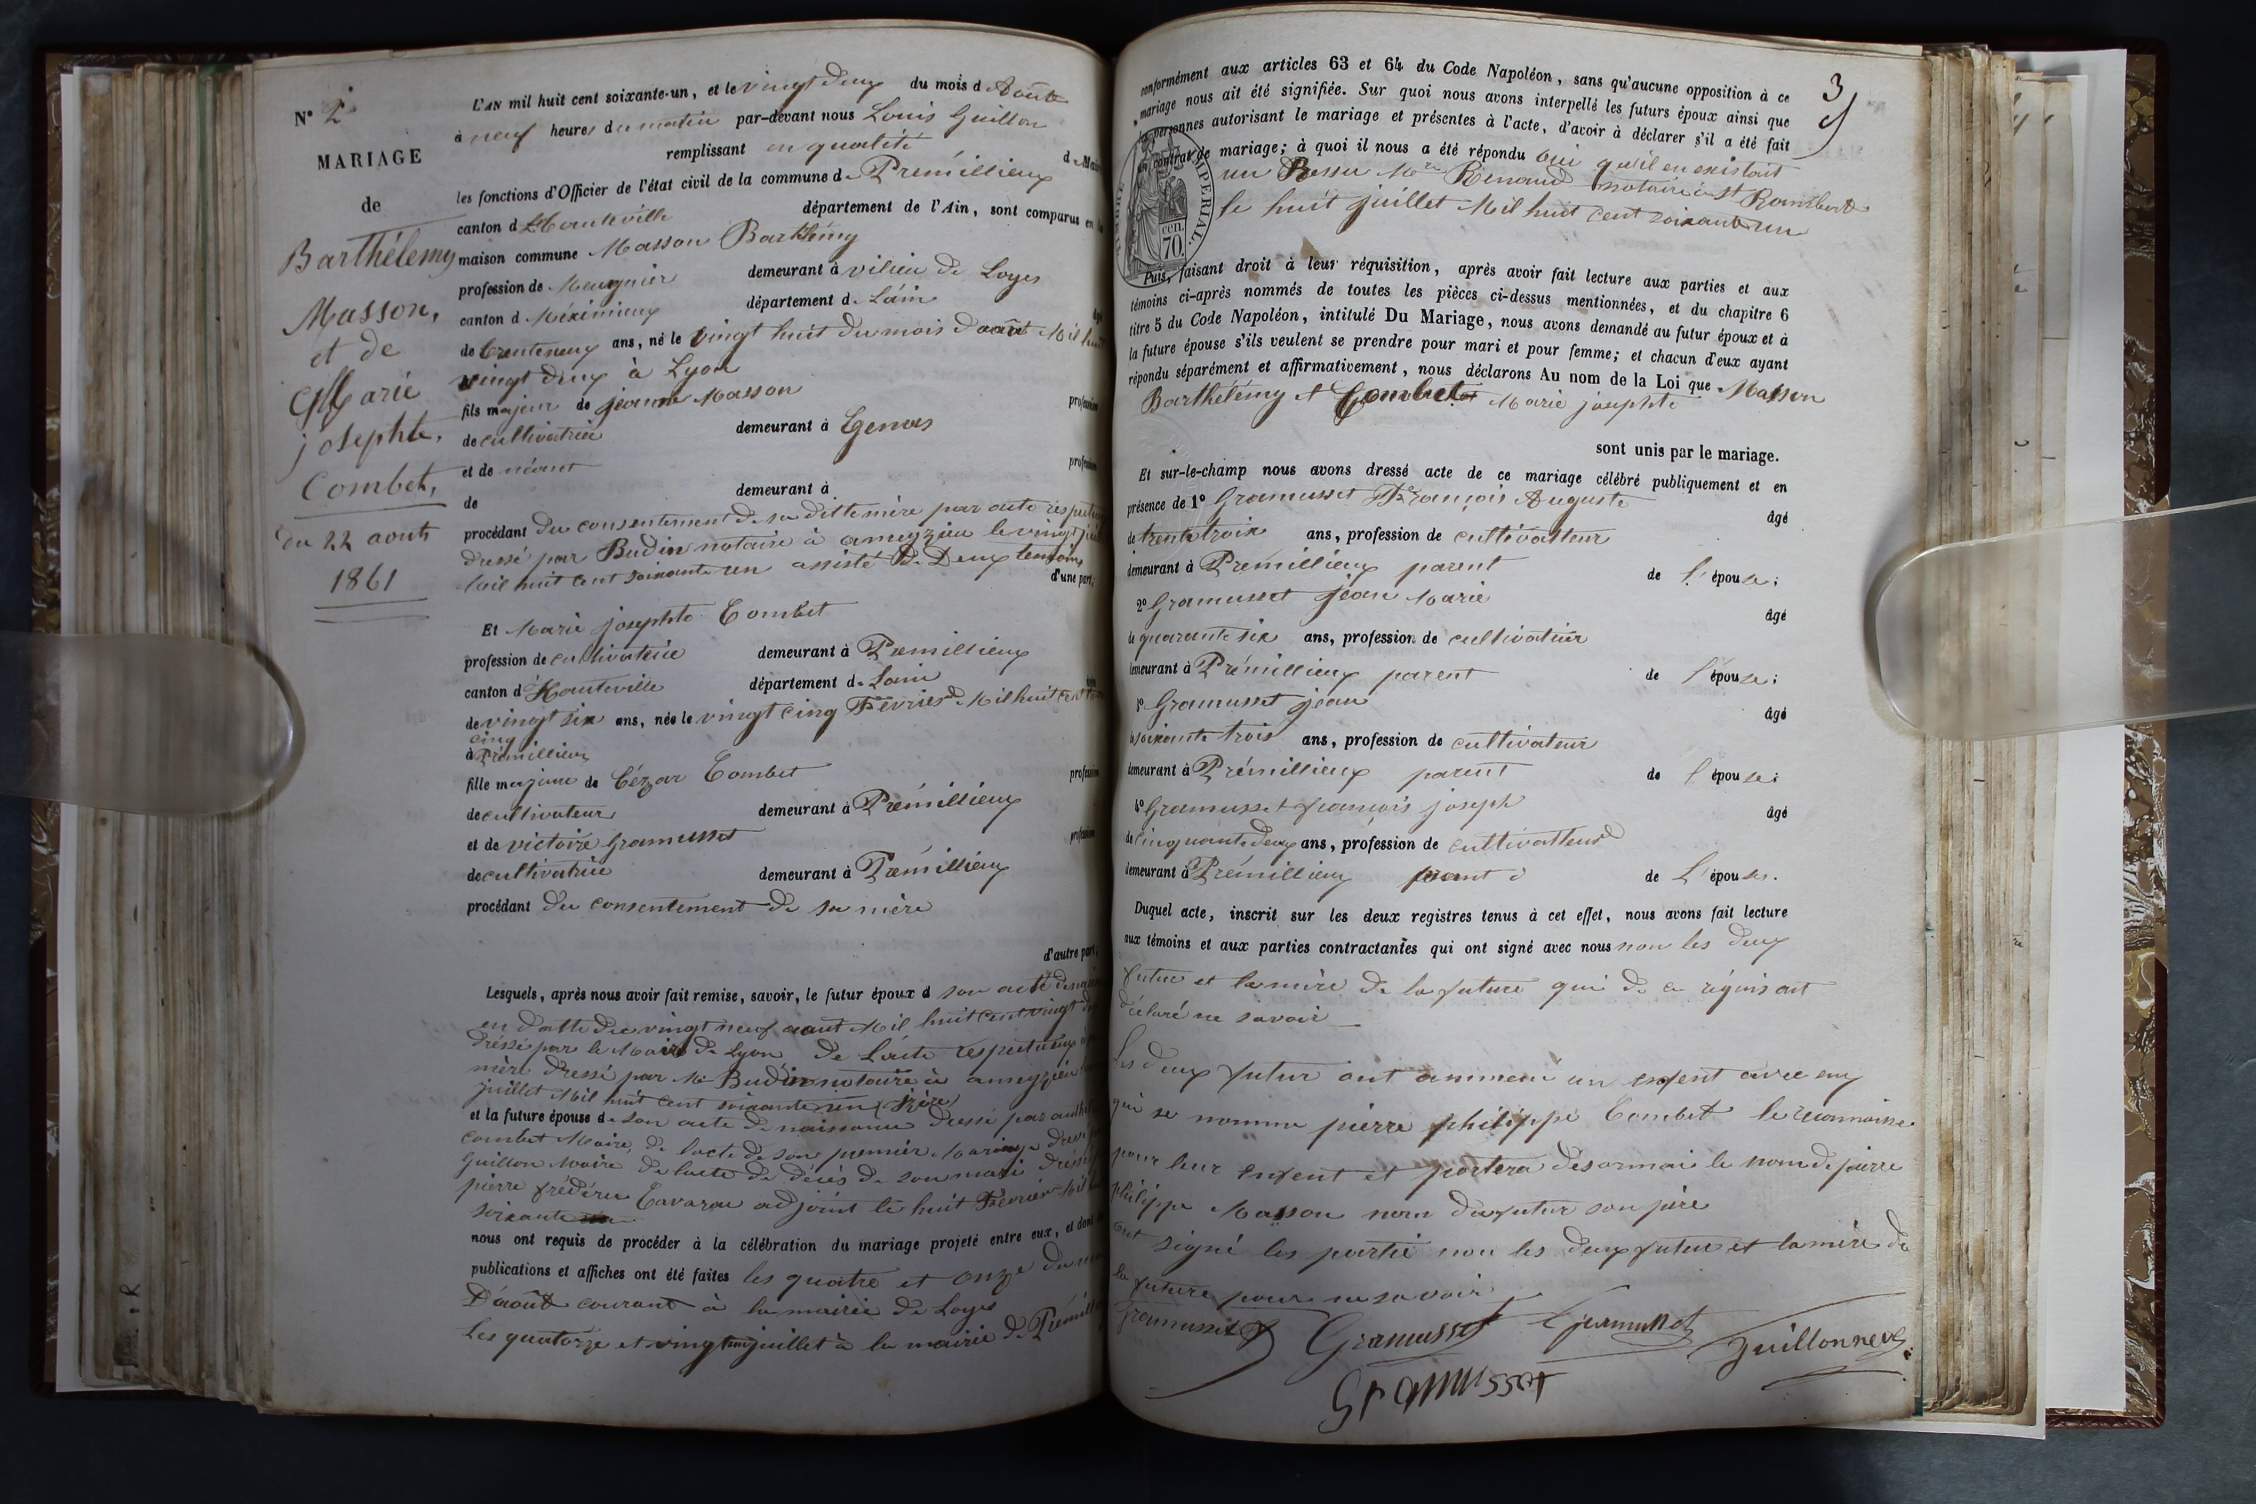 N° 2
MARIAGE
de
Barthélemy
Masson,
et de
Marie
josephte,
Combet,
du 22 aout
1861
L'AN mil huit cent soixante-un, et le vingt deux du mois d Août
à neuf heures du matin par-devant nous Louis Guillon
remplissant en qualité de Maire
les fonctions d'Officier de l'état civil de la commune de Prémillieux
canton d'Hauteville département de l'Ain, sont comparus en la
maison commune Masson Barthlémy
profession de Meugnier demeurant à vilieu de Loyes
canton d Méximieux département de Láin
âgé
de trenteneuf ans, né le vingt huit du mois d'août Mil huit
vingt deux à Lyon
fils majeur de jeanne Masson profession
de cultivatrice demeurant à Genas
et de néant profession
de demeurant à
procédant du consentement de sa ditte mère par acte respectueux
dressé par Budin notaire à ameyzieu le vingt juin
Mil huit cent soixante un assisté de Deux temoins
d'une part;
Et Marie josephte Combet
profession de cultivatrice demeurant à Prémillieux
canton d'Hauteville département de Lain
de vingt six ans, née le vingt cinq Février Mil huit cent trente
cinq
à Prémillieux
fille majeure de Cézar Combet profession
de cultivateur demeurant à Prémillieux
et de victoire Gramusset profession
de cultivatrice demeurant à Prémillieux
procédant du consentement de sa mère
d'autre part;
Lesquels, après nous avoir fait remise, savoir, le futur époux d son acte de naissance
en datte du vingt neuf aout Mil huit cent vingt deux
dréssé par le Maire de Lyon de Lácte respectueux
mère dressé par Me Budin notaire à ameyzieu
juillet Mil huit cent soixante un
et la future épouse de son acte de naissance dressé par
Combet Maire, de lacte de son premier Mariage dressé
Guillon Maire de lacte de décés de son mari dréssé
pierre frédéric Tavarau adjoint le huit Février Mil
soixante
nous ont requis de procéder à la célébration du mariage projeté entre eux, et dont
publications et affiches ont été faites les quatre et onze du mois
D'août courant à la mairie de Loyes
Les quatorze et vingt juillet à la mairie de Prémillieux
3
conformément aux articles 63 et 64 du Code Napoléon, sans qu'aucune opposition à ce
mariage nous ait été signifiée. Sur quoi nous avons interpellé les futurs époux ainsi que
les personnes autorisant le mariage et présentes à l'acte, d'avoir à déclarer s'il a été fait
un contrat de mariage; à quoi il nous a été répondu oui qu'il en existait
un Ressu Mtre Renaud notaire à St Rambert
le huit juillet Mil huit cent soixante un
IMPERIAL.
cen.
70.
Puis, faisant droit à leur réquisition, après avoir fait lecture aux parties et aux
témoins ci-après nommés de toutes les pièces ci-dessus mentionnées, et du chapitre 6
titre 5 du Code Napoléon, intitulé Du Mariage, nous avons demandé au futur époux et à
la future épouse s'ils veulent se prendre pour mari et pour femme; et chacun d'eux ayant
répondu séparément et affirmativement, nous déclarons Au nom de la Loi que Masson
Barthélémy et Combet Marie josephte
sont unis par le mariage.
Et sur-le-champ nous avons dressé acte de ce mariage célébré publiquement et en
présence de 1° Gramusset François Auguste
âgé
de trente trois ans, profession de cultivatteur
demeurant à Prémillieux parent de l'épouse;
2° Gramusset Jean Marie
âgé
de quarante six ans, profession de cultivateur
demeurant à Prémillieux parent de l'épouse;
3° Gramusset jean
âgé
de soixante trois ans, profession de cultivateur
demeurant à Prémillieux parent de l'épouse;
4° Gramusset françois joseph
âgé
de cinquante deux ans, profession de cultivatteur
demeurant à Prémillieux parent de L'épouse.
Duquel acte, inscrit sur les deux registres tenus à cet effet, nous avons fait lecture
aux témoins et aux parties contractantes qui ont signé avec nous non les deux
futur et la mère de la future qui de ce réquis ont
déclaré ne savoir
Les deux futur ont ammené un enfent avec eux
qui se nomme pierre philippe Combet le reconnaisse
pour leur enfent et portera désormai le nom de pierre
philippe Masson nom du futur son père
ont signé les partie non les deux futur et la mère de
la future pour ne savoir
Gramusset Gramusset Gramusset Guillon
Gramusset